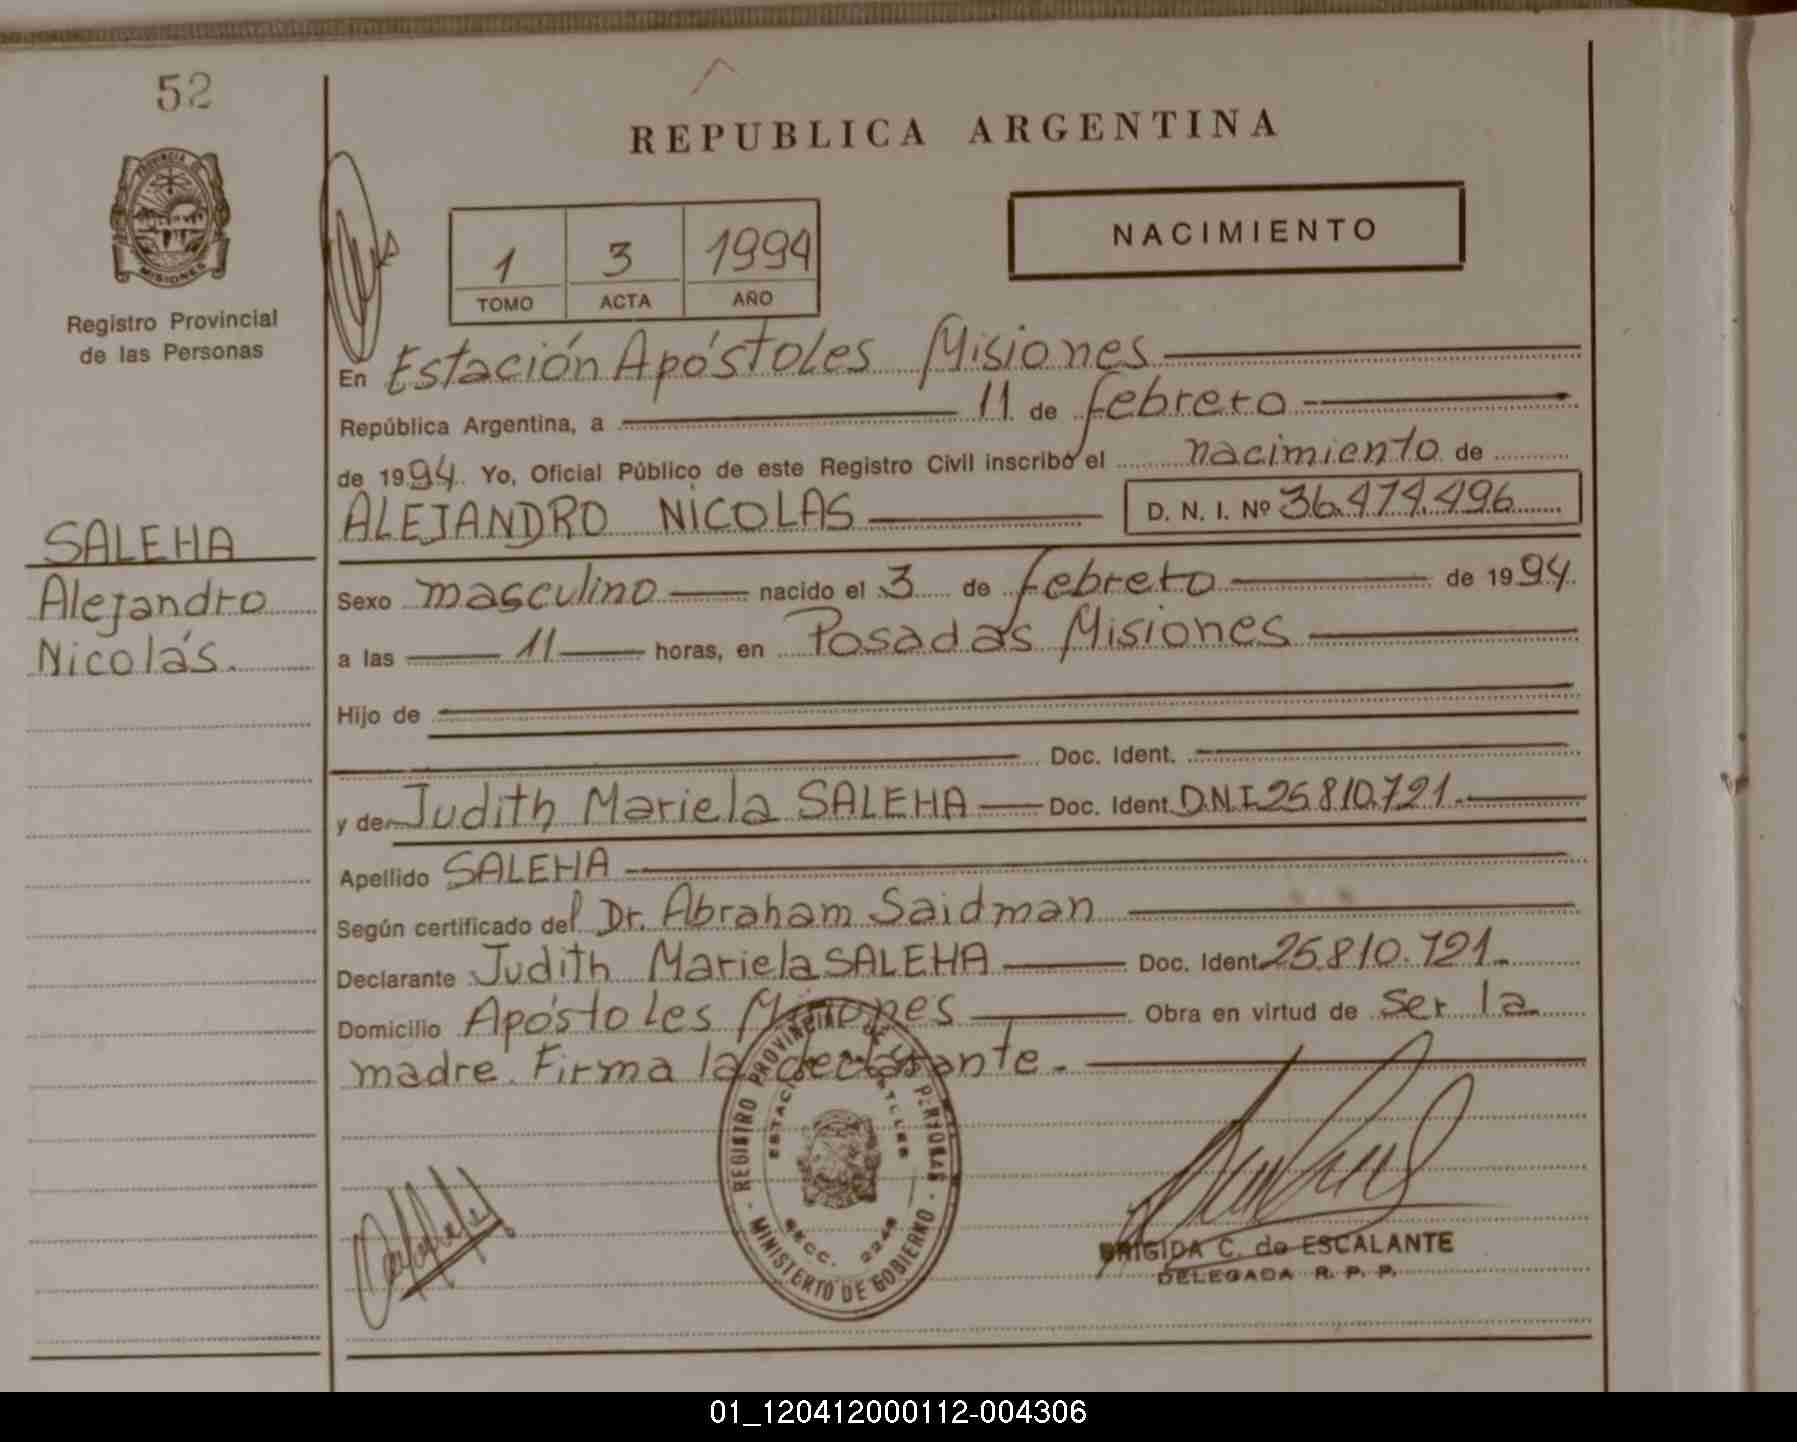 52
REPUBLICA ARGENTINA
PROVINCIA DE
MISIONES
Registro Provincial
de las Personas
1 3 1994
TOMO ACTA AÑO
NACIMIENTO
En Estación Apóstoles Misiones
República Argentina, a 11 de febrero
de 1994. Yo, Oficial Público de este Registro Civil inscribo el nacimiento de
ALEJANDRO NICOLAS D. N. I. Nº 36.474.496
SALEHA
Alejandro
Nicolás.
Sexo masculino nacido el 3 de febrero de 1994.
a las 11 horas, en Posadas Misiones
Hijo de
Doc. Ident.
y de Judith Mariela SALEHA Doc. Ident. D.N.I. 25.810.721.
Apellido SALEHA
Según certificado del Dr. Abraham Saidman
Declarante Judith Mariela SALEHA Doc. Ident. 25.810.721.
Domicilio Apóstoles Misiones Obra en virtud de ser la
madre. Firma la declarante.
REGISTRO PROVINCIAL DE LAS PERSONAS
- MINISTERIO DE GOBIERNO -
SECC. 2248
BRIGIDA C. de ESCALANTE
DELEGADA R. P. P.
01_120412000112-004306